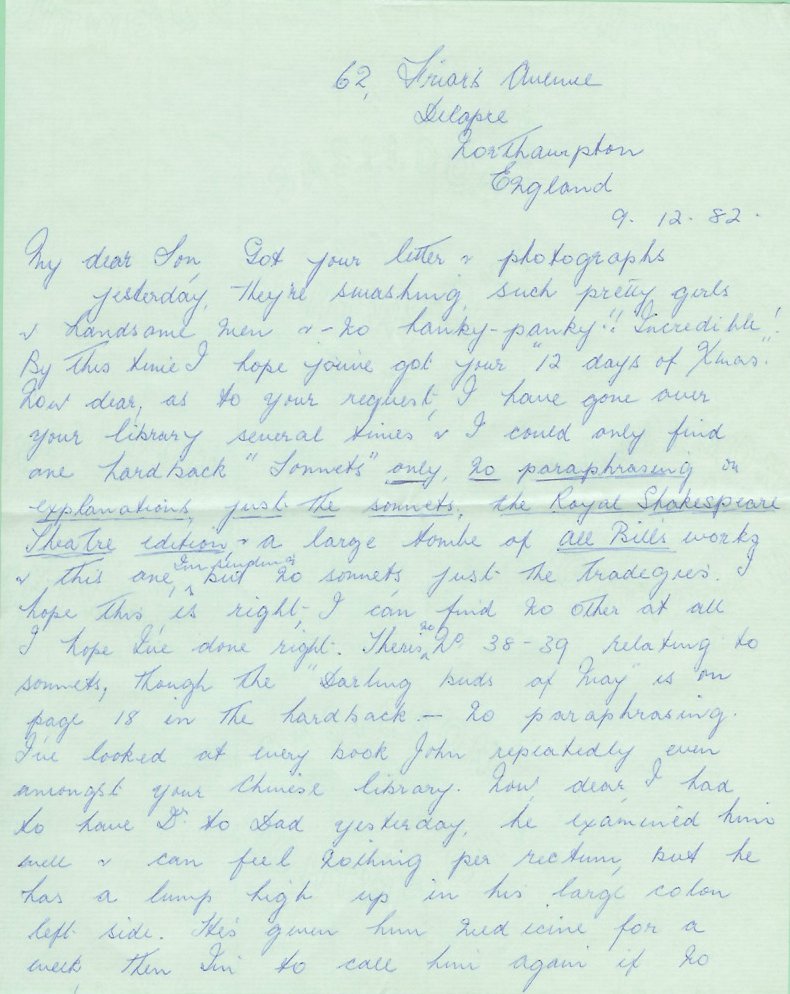 62, Friars Avenue
Delapre
Northampton
England
9. 12. 82.
My dear Son, Got your letter & photographs
yesterday, they're smashing, such pretty girls
& handsome men & - no hanky-panky!! Incredible!
By this time I hope you've got your "12 days of Xmas".
Now dear, as to your request, I have gone over
your library several times & I could only find
one hardback "Sonnets" only, no paraphrasing or
explanations, just the sonnets, the Royal Shakespeare
Theatre edition & a large tombe of all Bill's works
& this one, I'm sending but no sonnets, just the tradegies. I
hope this is right, I can find no other at all
I hope I've done right. Theris no No 38-39 relating to
sonnets, though the "Darling buds of May" is on
page 18 in the hardback - no paraphrasing.
I've looked at every book John repeatedly even
amongst your Chinese library. Now, dear, I had
to have Dr to Dad yesterday, he examined him
well & can feel nothing per rectum, but he
has a lump high up in his large colon
left side. He's given him medicine for a
week, then I'm to call him again if no